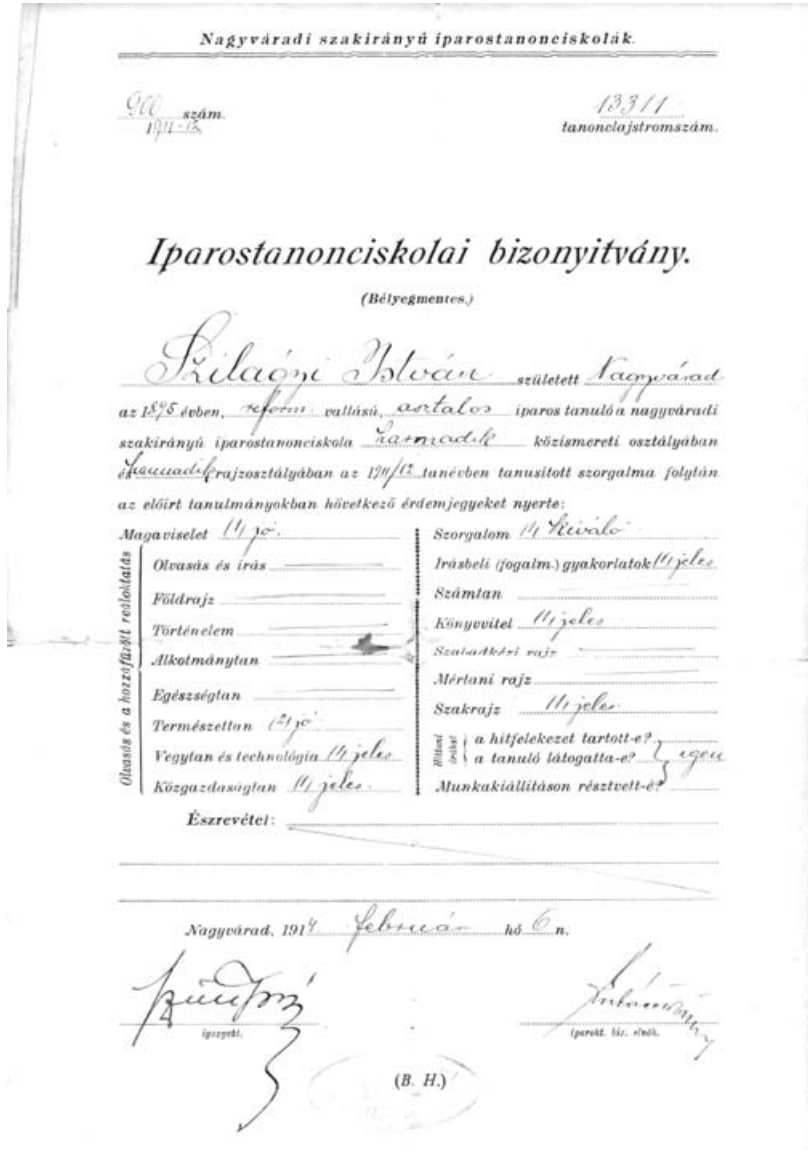 Nagyváradi szakirányú iparostanonciskolák.
900 szám. 13311
1911-12 tanonclajstromszám.
Iparostanonciskolai bizonyitvány.
(Bélyegmentes.)
Szilágyi István született Nagyvárad
az 1895 évben, reform. vallású, asztalos iparos tanuló a nagyváradi
szakirányú iparostanonciskola harmadik közismereti osztályában
és harmadik rajzosztályában az 1911/12 tanévben tanusitott szorgalma folytán
az előirt tanulmányokban következő érdemjegyeket nyerte:
Magaviselet (1) jó.
Olvasás és a hozzáfűzött reáloktatás
Olvasás és irás
Földrajz
Történelem
Alkotmánytan
Egészségtan
Természettan (2) jó
Vegytan és technológia (1) jeles
Közgazdaságtan (1) jeles.
Szorgalom (1) kiváló
Irásbeli (fogalm.) gyakorlatok (1) jeles
Számtan
Könyvvitel (1) jeles
Szabadkézi rajz
Mértani rajz
Szakrajz (1) jeles.
Hittani órákat
a hitfelekezet tartott-e?
a tanuló látogatta-e? igen
Munkakiállitáson résztvett-é?
Észrevétel:
Nagyvárad, 1914 február hó 6 n.
igazgató. iparokt. biz. elnök.
(B. H.)